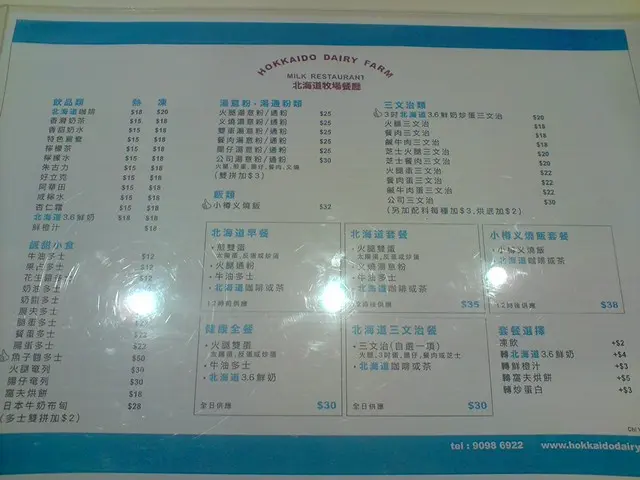 HOKKAIDO DAIRY FARM
MILK RESTAURANT
北海道牧場餐廳
飲品類 熱 凍
北海道咖啡 $18 $20
香滑奶茶 $15 $18
香甜奶水 $15 $18
特色鴛鴦 $15 $18
檸檬茶 $15 $18
檸檬水 $15 $18
朱古力 $15 $18
好立克 $15 $18
阿華田 $15 $18
咸檸水 $15 $18
杏仁霜 $15 $18
北海道3.6鮮奶 $18 $18
鮮橙汁 $18
誠甜小食
牛油多士 $12
果占多士 $12
花生醬多士
奶油多士
奶甜多士
腸蛋多士 12
餐蛋多士 $22
腿蛋多士 $22
魚子麵多士 $50
火腿竜列 $30
腸仔竜列 $30
窩夫烘餅 $18
日本牛奶布甸 $28
(多士雙拼加$2)
湯意粉・湯通粉類
火腿湯意粉/通粉 $25
叉燒湯意粉/通粉 $25
雙蛋湯意粉/通粉 $25
餐肉湯意粉/通粉 $25
腸仔湯意粉/通粉 $25
公司湯意粉/通粉 $30
火腿,煎蛋,腸仔,餐肉,叉燒
(雙拼加$3)
飯類
小樽叉燒飯 $32
三文治類
3吋北海道3.6鮮奶炒蛋三文治 $20
火腿三文治 $18
餐肉三文治 $18
鹹牛肉三文治 $18
芝士火腿三文治 $20
芝士餐肉三文治 $20
火腿蛋三文治 $22
餐肉蛋三文治 $22
鹹牛肉蛋三文治 $22
公司三文治 $30
(另加配料每種加$3,烘底加$2)
北海道早餐
・煎雙蛋
太陽蛋,反蛋或炒蛋
・火腿通粉
・牛油多士
・北海道咖啡或茶
12時前供應
北海道套餐
・火腿雙蛋
太陽蛋,反蛋或炒蛋
・叉燒湯意粉
・牛油多士
・北海道咖啡或茶
12時後供應 $35
小樽叉燒飯套餐
・小樽叉燒飯
北海道咖啡或茶
12時後供應 $38
健康全餐
・火腿雙蛋
太陽蛋,反蛋或炒蛋
・牛油多士
・北海道3.6鮮奶
全日供應 $30
北海道三文治餐
・三文治(自選一項)
火腿,3吋蛋,腸仔,餐肉或芝士
・北海道咖啡或茶
全日供應 $30
套餐選擇
凍飲 +$2
轉北海道3.6鮮奶 +$4
轉鮮橙汁 +$3
轉窩夫烘餅 +$5
轉炒蛋白 +$3
tel : 9098 6922 www.hokkaidodairy